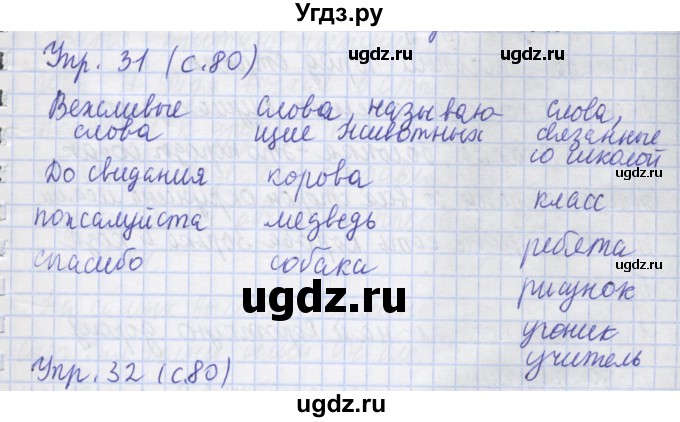 Угдз.ру
Упр. 31 (с.80)
ugdz.ru ugdz.ru
Вежливые слова, называю- слова,
слова щие животных связанные
со школой
ugdz.ru
До свидания корова
класс
пожалуйста медведь
ребята
спасибо собака
ugdz.ru
рисунок
ugdz.ru
ученик
учитель
Упр. 32 (с.80)
ugdz.ru
ugdz.ru